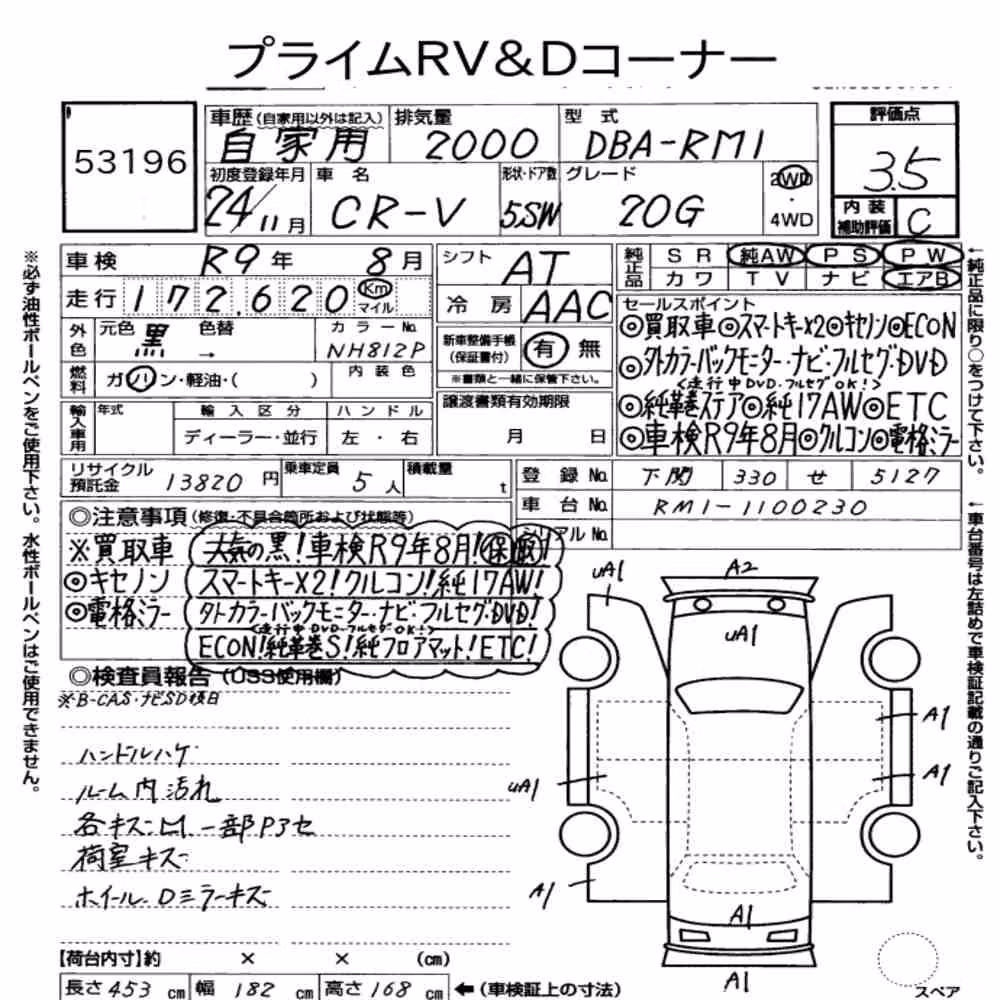 プライムRV&Dコーナー
53196
車歴 (自家用以外は記入) 自家用
排気量 2000
型式 DBA-RM1
評価点 3.5
内装補助評価 C
初度登録年月 24/11月
車名 CR-V
形状・ドア数 5.SW
グレード 20G
2WD・4WD
車検 R9年 8月
走行 172,620 Km マイル
シフト AT
冷房 AAC
純正品 SR 純AW PS PW
カワ TV ナビ エアB
外色 元色 黒 色替 → カラーNo. NH812P
燃料 ガソリン・軽油・( ) 内装色
新車整備手帳(保証書付) 有 無
※書類と一緒に保管下さい。
輸入車用 年式 輸入区分 ディーラー・並行 ハンドル 左・右
譲渡書類有効期限 月 日
セールスポイント
◎買取車◎スマートキーX2◎キセノン◎ECON
◎外カラーバックモニター・ナビ・フルセグ・DVD
<走行中DVD・フルセグOK!>
◎純革巻ステア◎純17AW◎ETC
◎車検R9年8月◎クルコン◎電格ミラー
リサイクル預託金 13820円
乗車定員 5人
積載量 t
登録No. 下関 330 せ 5127
車台No. RM1-1100230
シリアルNo.
◎注意事項(修復・不具合箇所および状態等)
※買取車
◎キセノン
◎電格ミラー
人気の黒!車検R9年8月!保取!
スマートキーX2!クルコン!純17AW!
外カラーバックモニター・ナビ・フルセグ・DVD!
<走行中DVD・フルセグOK!>
ECON!純革巻S!純フロアマット!ETC!
◎検査員報告(USS使用欄)
※B-CAS・ナビSD後日
ハンドルハゲ
ルーム内汚れ
各キズ凹 一部Pヨセ
荷室キズ
ホイール、Dミラーキズ
uA1
A2
uA1
A1
A1
uA1
A1
A1
A1
スペア
【荷台内寸】約 × × (cm)
長さ 453 cm 幅 182 cm 高さ 168 cm ←(車検証上の寸法)
※必ず油性ボールペンをご使用下さい。水性ボールペンはご使用できません。
←純正品に限り○をつけて下さい。
←車台番号は左詰めで車検証記載の通りご記入下さい。